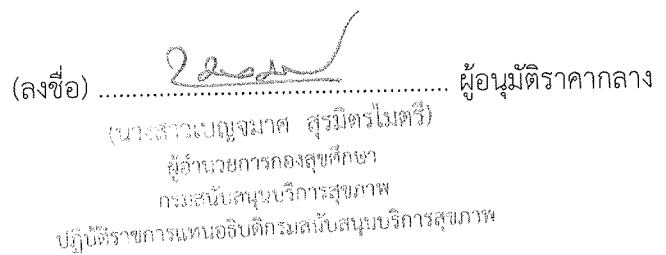 (ลงชื่อ) ................................................ ผู้อนุมัติราคากลาง
(นางสาวเบญจมาศ สุรมิตรไมตรี)
ผู้อำนวยการกองสุขศึกษา
กรมสนับสนุนบริการสุขภาพ
ปฏิบัติราชการแทนอธิบดีกรมสนับสนุนบริการสุขภาพ